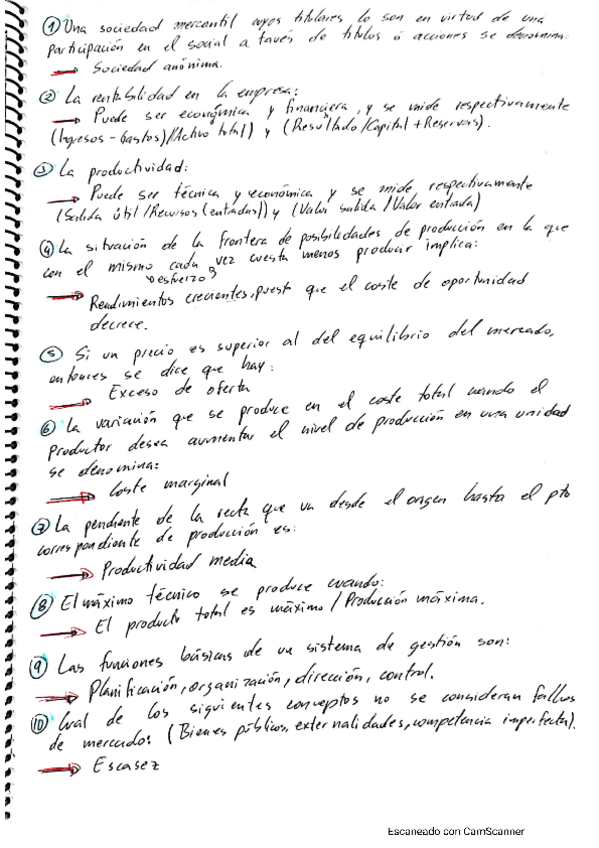 ① Una sociedad mercantil cuyos titulares lo son en virtud de una
participación en el social a través de títulos o acciones se denomina:
Sociedad anónima.
② La rentabilidad en la empresa:
Puede ser económica y financiera, y se mide respectivamente
(Ingresos - Gastos)/(Activo total) y (Resultado/Capital + Reservas).
③ La productividad:
Puede ser técnica y económica y se mide, respectivamente
(Salida útil/Recursos (entradas)) y (Valor salida/Valor entrada)
④ La situación de la frontera de posibilidades de producción en la que
con el mismo cada vez cuesta menos producir implica:
esfuerzo
Rendimientos crecientes, puesto que el coste de oportunidad
decrece.
⑤ Si un precio es superior al del equilibrio del mercado,
entonces se dice que hay:
Exceso de oferta
⑥ La variación que se produce en el coste total cuando el
productor desea aumentar el nivel de producción en una unidad
se denomina:
Coste marginal
⑦ La pendiente de la recta que va desde el origen hasta el pto
correspondiente de producción es:
Productividad media
⑧ El máximo técnico se produce cuando:
El producto total es máximo / Producción máxima.
⑨ Las funciones básicas de un sistema de gestión son:
Planificación, organización, dirección, control.
⑩ Cual de los siguientes conceptos no se consideran fallos
de mercado: (Bienes públicos, externalidades, competencia imperfecta).
Escasez
Escaneado con CamScanner